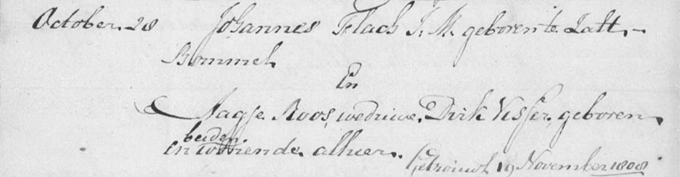 October 28 Johannes Flach J. M. geboren te Zalt-
Bommel
En
Aagje Roos, weduwe Dirk Visser, geboren
beiden
en woonende alhier. Getrouwt 19 November 1808